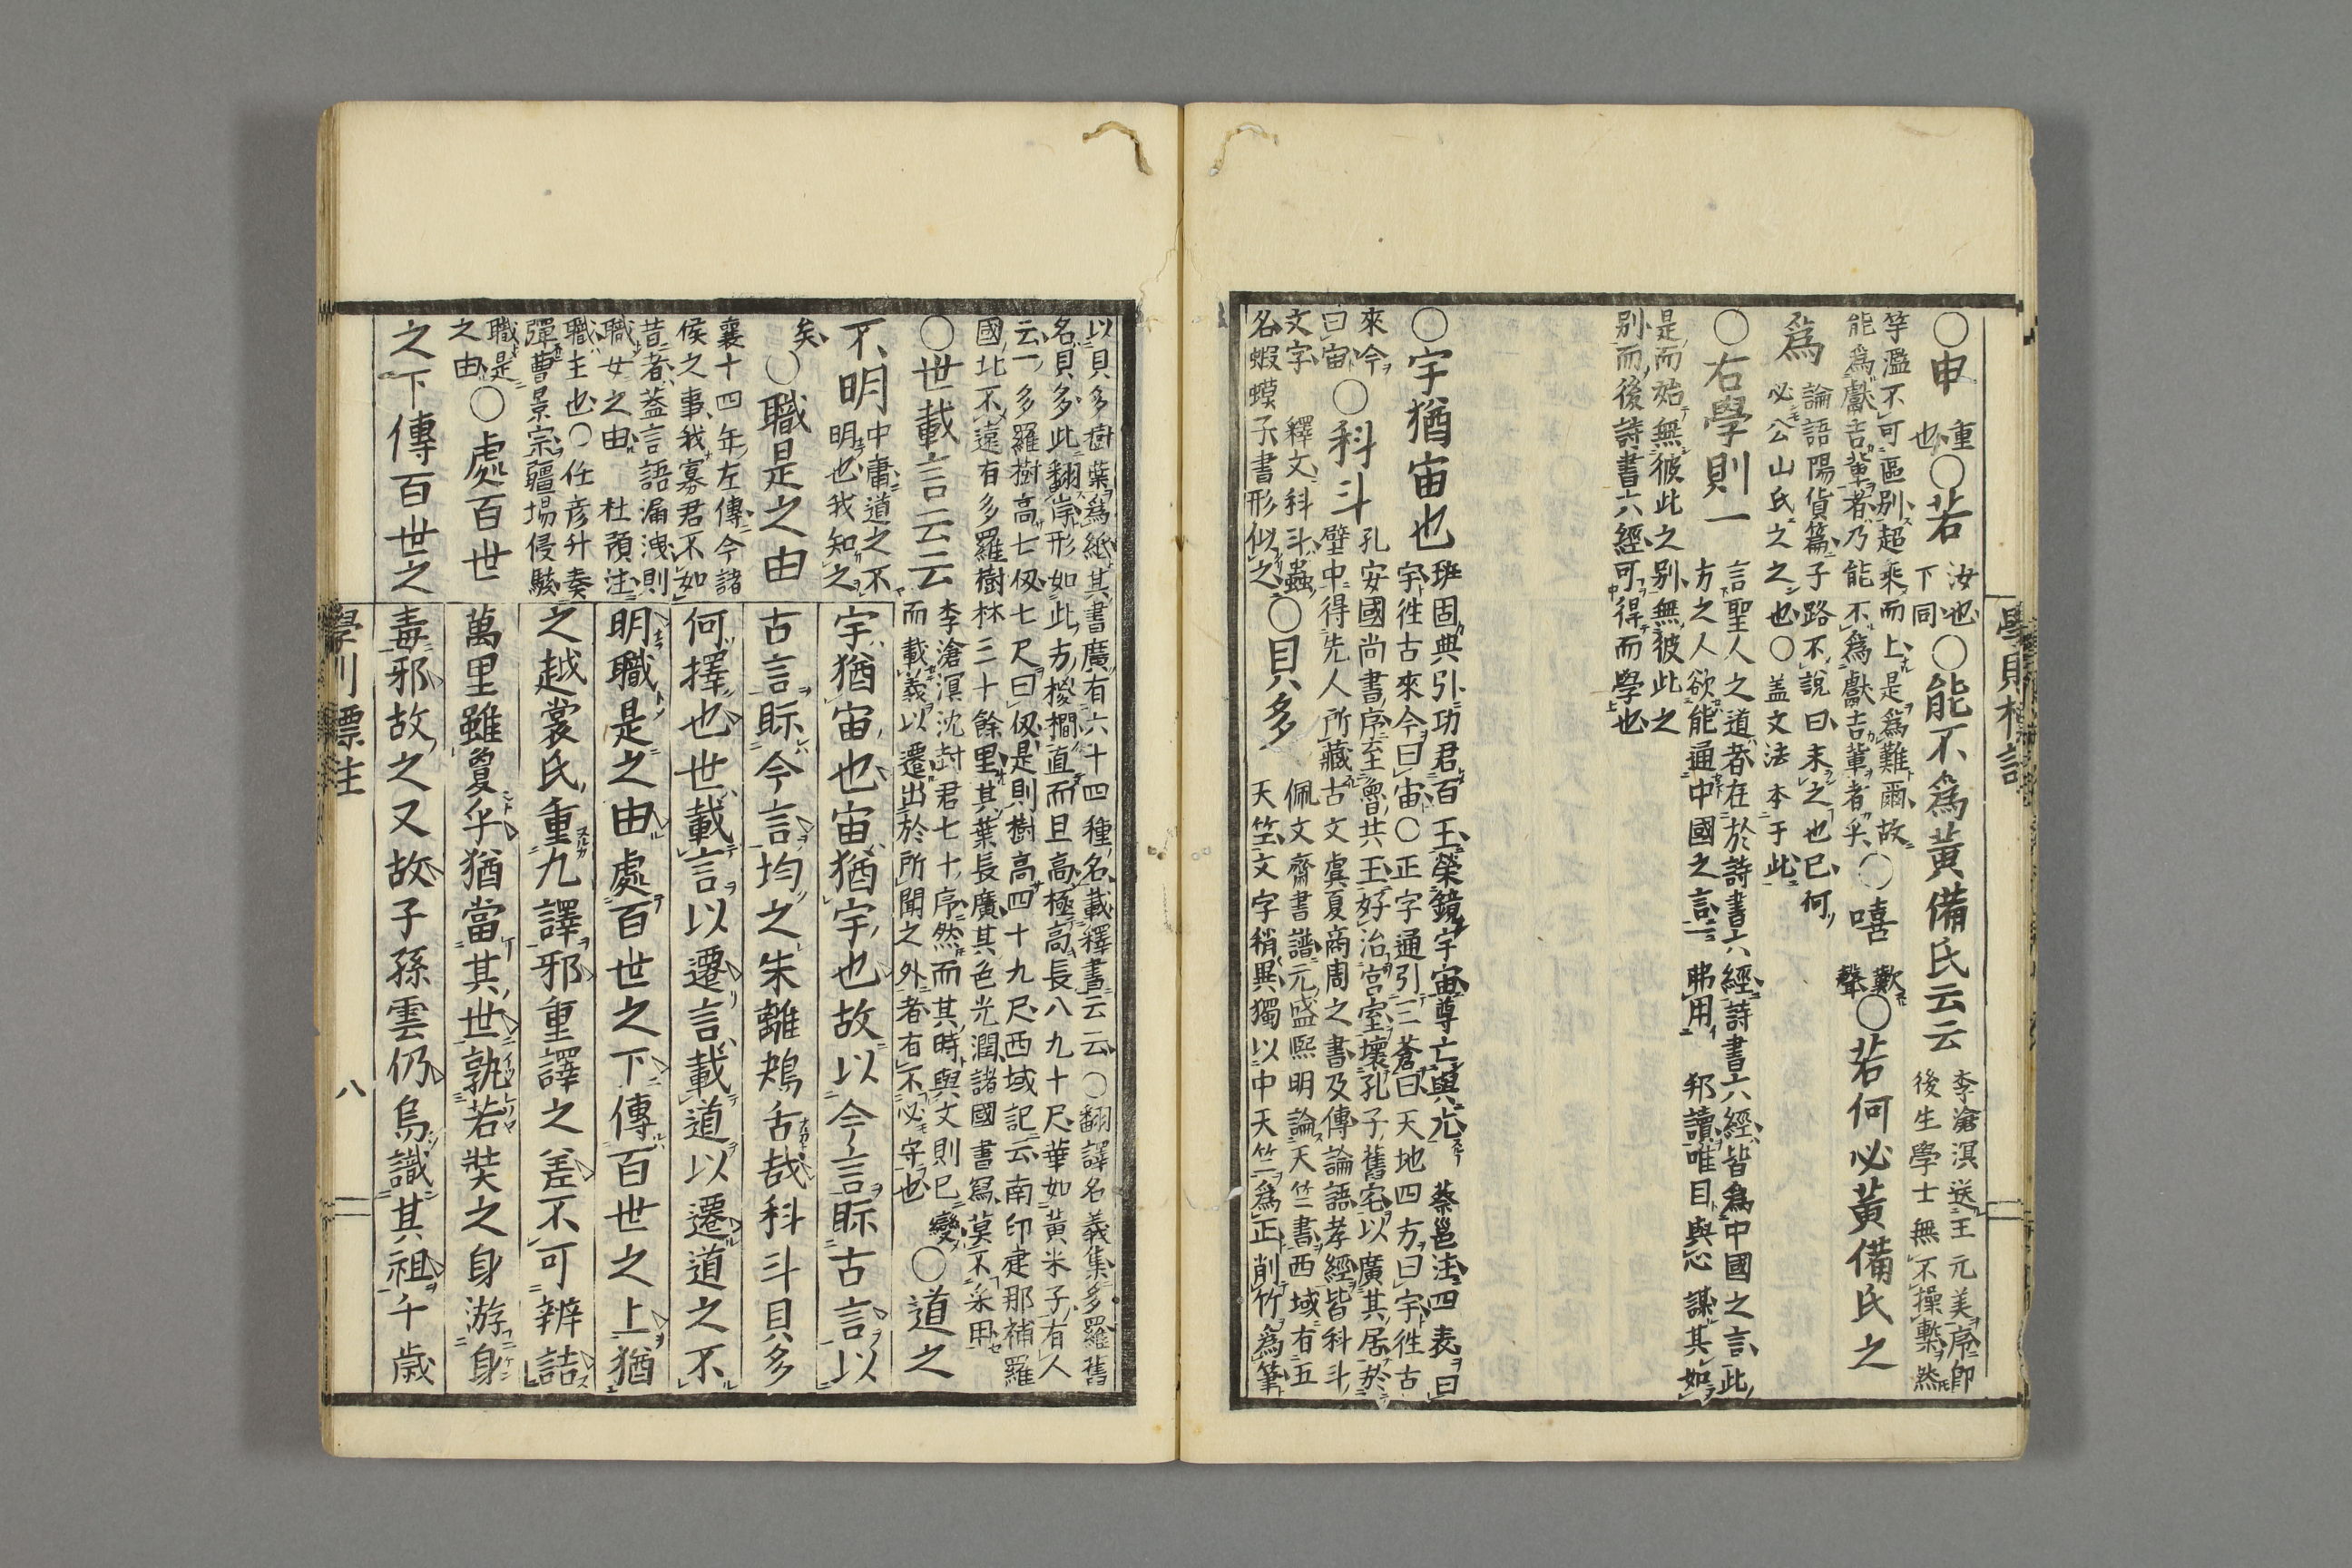 學則標註
○申
重
也
○若
汝也
下同
○能不爲黃備氏云云
李滄溟送王元美序即
後生學士無不操槧然
竽濫不可區别超乘而上是爲難爾故
能爲獻吉輩者乃能不爲獻吉輩者乎
○嘻
歎
聲
○若何必黃備氏之
爲
論語陽貨篇子路不說曰末之也已何
必公山氏之之也○蓋文法本于此
○右學則一
言聖人之道者在於詩書六經詩書六經皆爲中國之言此
方之人欲能通中國之言
弗用
邦讀唯目與心謀其如
是而始無彼此之别無彼此之
别而後詩書六經可得而學也
○宇猶宙也
班固典引功君百王榮鏡宇宙尊亡與亢
蔡邕注四表曰
宇徃古來今曰宙○正字通引三蒼曰天地四方曰宇徃古
來今
曰宙
○科斗
孔安國尚書序至魯共王好治宮室壞孔子舊宅以廣其居於
壁中得先人所藏古文虞夏商周之書及傳論語孝經皆科斗
文字
釋文科斗蟲
佩文齋書譜元盛熙明論天竺書西域有五
名蝦蟆子書形似之
○貝多
天竺文字稍異獨以中天竺爲正削竹爲筆
以貝多樹葉爲紙其書廣有六十四種名載釋書云云○翻譯名義集多羅舊
名貝多此翻岸形如此方椶櫚直而且高極高長八九十尺華如黃米子有人
云一多羅樹高七仭七尺曰仭是則樹高四十九尺西域記云南印建那補羅
國北不遠有多羅樹林三十餘里其葉長廣其色光潤諸國書寫莫不采用
○世載言云云
李滄溟沈封君七十序然而其時與文則已變
而載義以遷出於所聞之外者有不必守也
○道之
不明
中庸道之不
明也我知之
矣
○職是之由
襄十四年左傳今諸
侯之事我寡君不如
昔者蓋言語漏洩則
職女之由
杜預注
職主也○任彦升奏
彈曹景宗疆場侵駭
職是
之由
○處百世
之下傳百世之
宇猶宙也宙猶宇也故以今言眎古言以
古言眎今言均之朱離鴂舌哉科斗貝多
何擇也世載言以遷言載道以遷道之不
明職是之由處百世之下傳百世之上猶
之越裳氏重九譯邪重譯之差不可辨詰
萬里雖夐乎猶當其世孰若奘之身游身
毒邪故之又故子孫雲仍烏識其祖千歲
學則標注
八